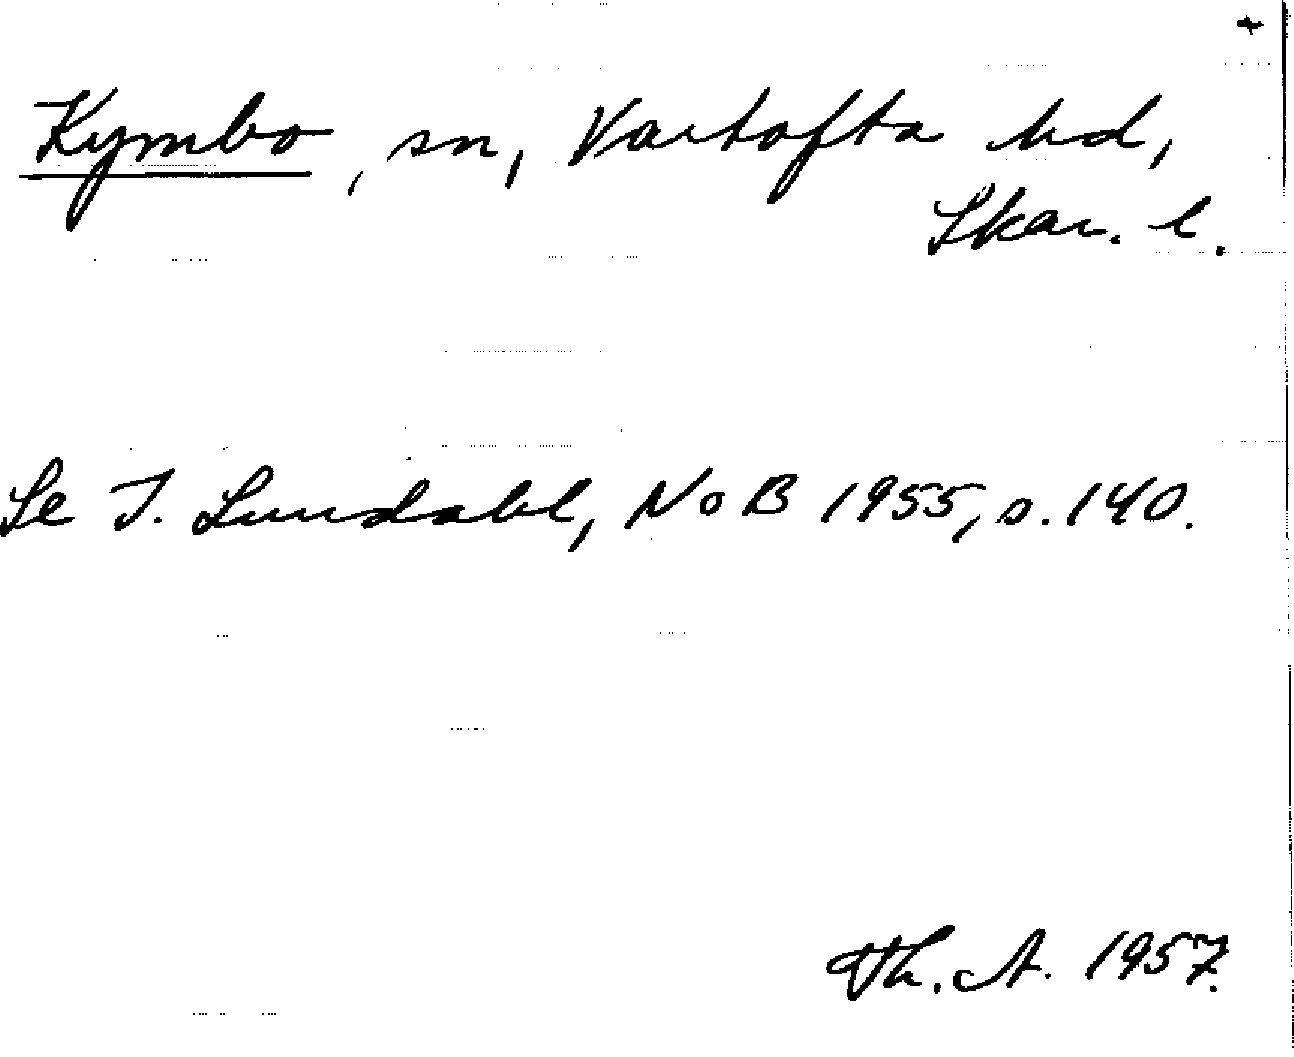 +
Kymbo, sn, Vartofta hd,
Skar. l.
Se I. Lundahl, NoB 1955, s. 140.
Th. A. 1957.